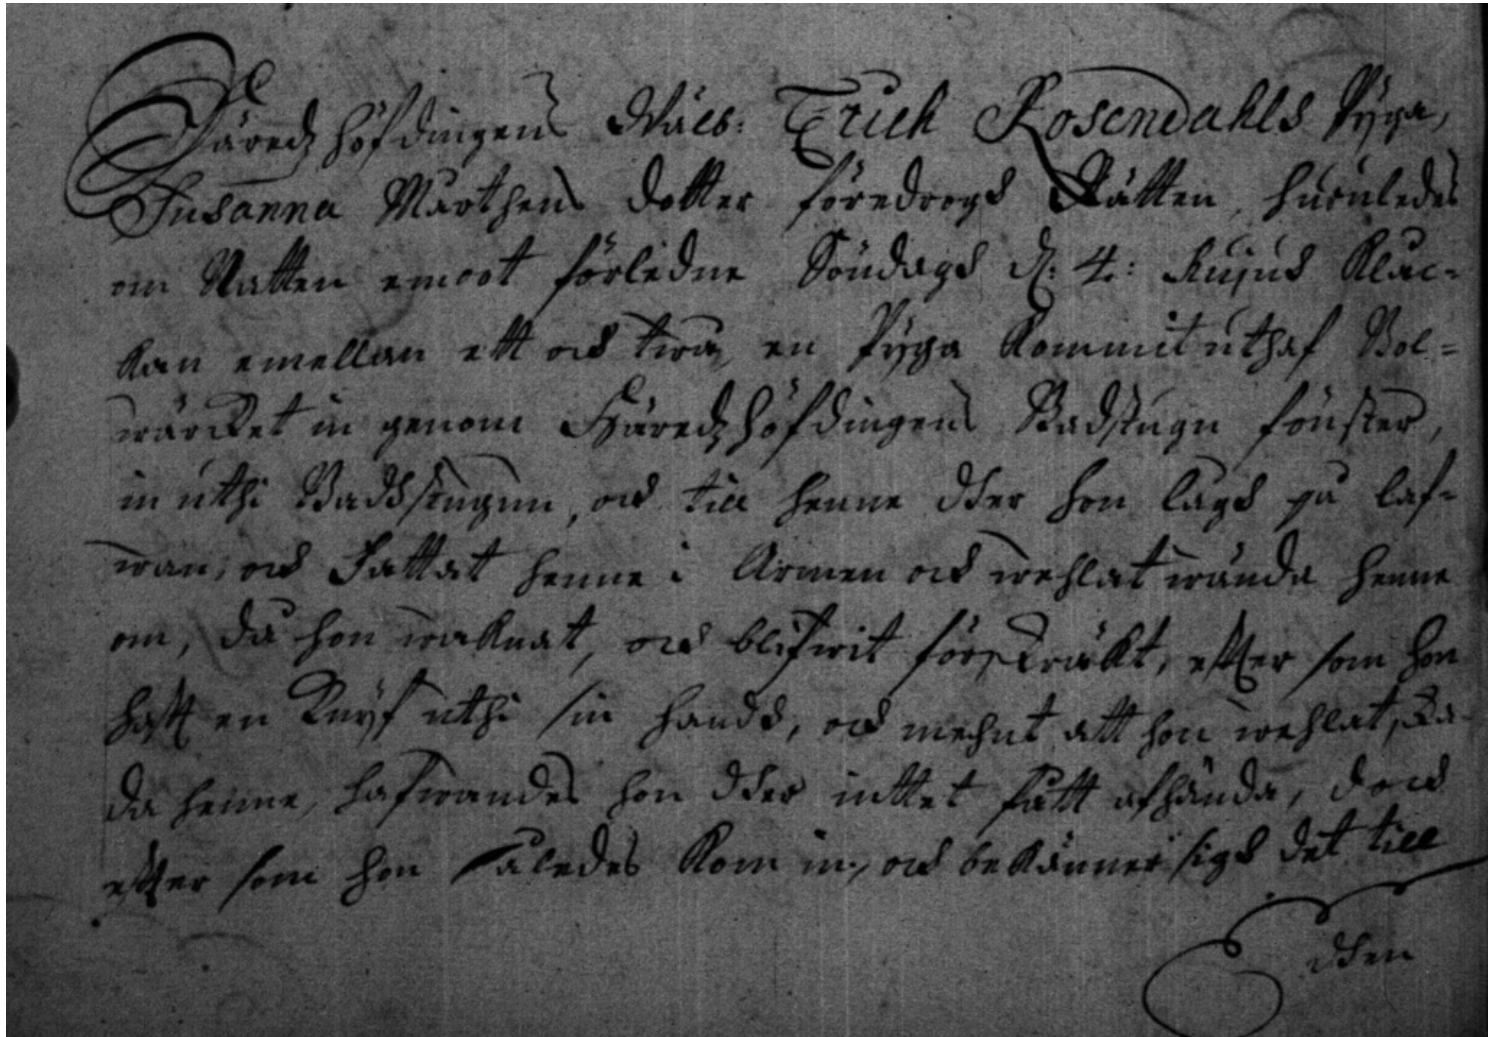 Häredz höfdingens Wäls: Erich Rosendahls Pyga,
Susanna Marthens dotter föredrogh Rätten, huruledes
om Natten emoot förledne Söndagh d: 4: hujus Kloc-
kan emellan ett och twa en Pyga kommit uthaf Bol-
wärcket in genom Häredz höfdingens Badstugu fönster,
in uthi Badhstugun, och till henne dher hon lågh på laf-
wan, och fattat henne i Armen och wehlat wända henne
om, då hon waknat, och blifwit förskräkt, effter som hon
hafft en Knyf uthi sin handh, och mehnt att hon wehlat ska-
da henne, hafwandes hon dher inttet fått afhända, doch
effter som hon således kom in, och bekänner sigh det till
dhen